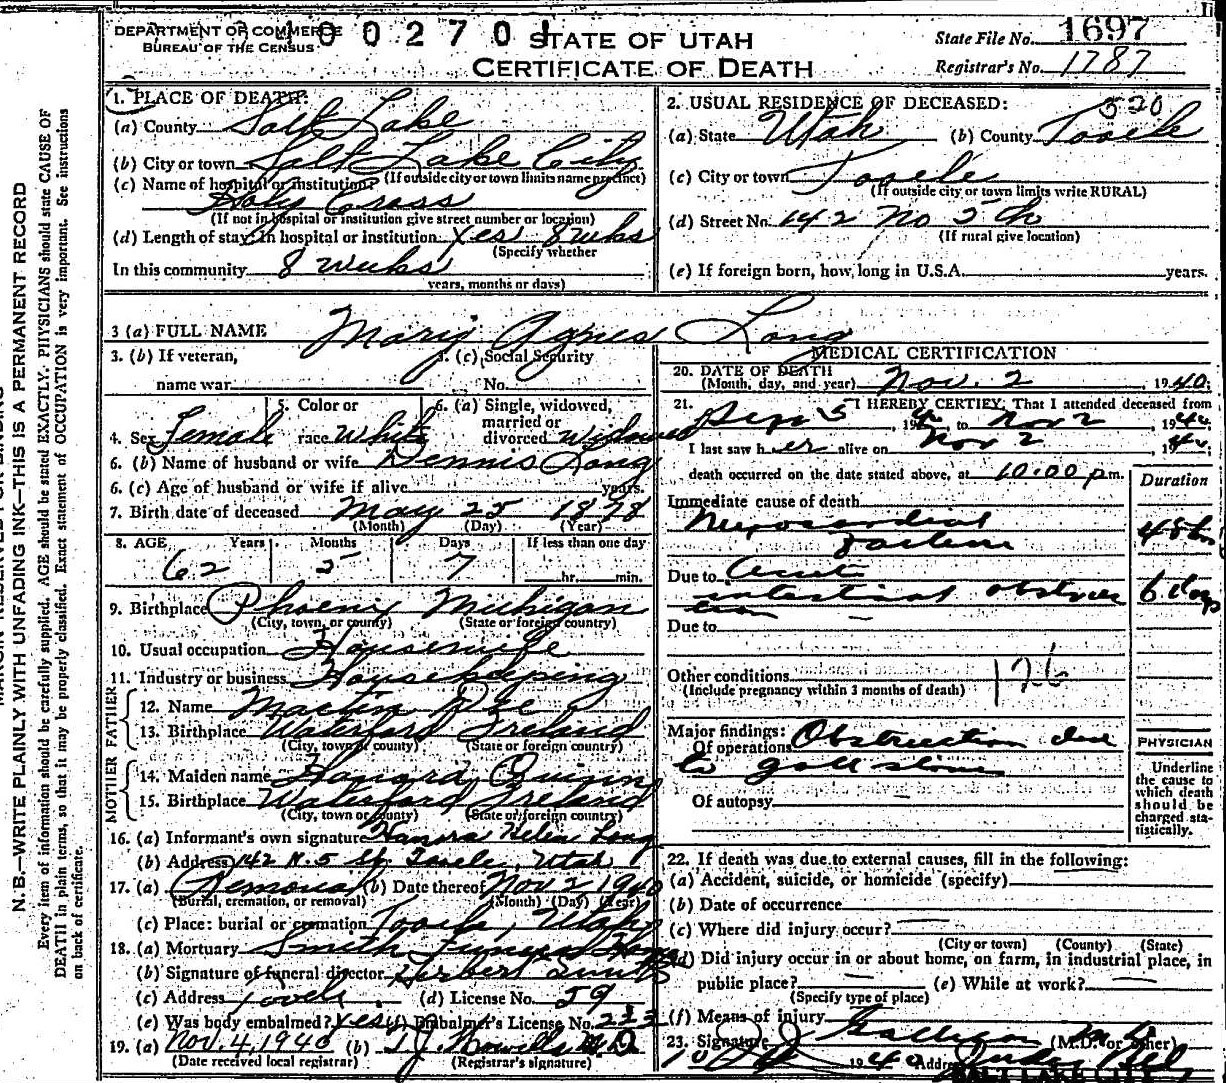 DEPARTMENT OF COMMERCE
BUREAU OF THE CENSUS
400270
STATE OF UTAH
CERTIFICATE OF DEATH
State File No. 1697
Registrar's No. 1787
N.B.—WRITE PLAINLY WITH UNFADING INK—THIS IS A PERMANENT RECORD
Every item of information should be carefully supplied. AGE should be stated EXACTLY. PHYSICIANS should state CAUSE OF
DEATH in plain terms, so that it may be properly classified. Exact statement of OCCUPATION is very important. See instructions
on back of certificate.
1. PLACE OF DEATH:
(a) County Salt Lake
(b) City or town Salt Lake City
(If outside city or town limits name precinct)
(c) Name of hospital or institution:
Holy Cross
(If not in hospital or institution give street number or location)
(d) Length of stay: In hospital or institution yes 8 wks
(Specify whether
In this community 8 weeks
years, months or days)
2. USUAL RESIDENCE OF DECEASED: 520
(a) State Utah (b) County Tooele
(c) City or town Tooele
(If outside city or town limits write RURAL)
(d) Street No. 142 No 5th
(If rural give location)
(e) If foreign born, how long in U.S.A. years.
3 (a) FULL NAME Mary Agnes Long
3. (b) If veteran,
name war
3. (c) Social Security
No.
4. Sex Female
5. Color or
race White
6. (a) Single, widowed,
married or
divorced widowed
6. (b) Name of husband or wife Dennis Long
6. (c) Age of husband or wife if alive years.
7. Birth date of deceased May 25 1878
(Month) (Day) (Year)
8. AGE Years Months Days If less than one day
62 5 7 hr. min.
9. Birthplace Phoenix Michigan
(City, town, or county) (State or foreign country)
10. Usual occupation Housewife
11. Industry or business Housekeeping
FATHER
12. Name Martin
13. Birthplace Waterford Ireland
(City, town or county) (State or foreign country)
MOTHER
14. Maiden name Quinn
15. Birthplace Waterford Ireland
(City, town or county) (State or foreign country)
16. (a) Informant's own signature Hanora Helen Long
(b) Address 142 N. 5 St. Tooele, Utah
17. (a) Removal (b) Date thereof Nov 2 1940
(Burial, cremation, or removal) (Month) (Day) (Year)
(c) Place: burial or cremation Tooele, Utah
18. (a) Mortuary Smith Funeral Home
(b) Signature of funeral director Herbert Smith
(c) Address Tooele. (d) License No. 59
(e) Was body embalmed? yes (f) Embalmer's License No. 233
19. (a) Nov. 4, 1940 (b) M.D
(Date received local registrar) (Registrar's signature)
MEDICAL CERTIFICATION
20. DATE OF DEATH
(Month, day, and year) Nov. 2, 1940;
21. I HEREBY CERTIFY, That I attended deceased from
Sept 5, 1940, to Nov 2, 1940.
I last saw her alive on Nov 2, 1940.
death occurred on the date stated above, at 10:00 pm.
Duration
Immediate cause of death
Myocardial
failure 48 hrs
Due to Acute
intestinal obstruc 6 days
tion
Due to
Other conditions 126
(Include pregnancy within 3 months of death)
Major findings:
Of operations Obstruction due
to gall stone
Of autopsy
PHYSICIAN
Underline
the cause to
which death
should be
charged sta-
tistically.
22. If death was due to external causes, fill in the following:
(a) Accident, suicide, or homicide (specify)
(b) Date of occurrence
(c) Where did injury occur?
(City or town) (County) (State)
(d) Did injury occur in or about home, on farm, in industrial place, in
public place? (e) While at work?
(Specify type of place)
(f) Means of injury
23. Signature (M.D. or other)
1940 Address
SALT LAKE CITY